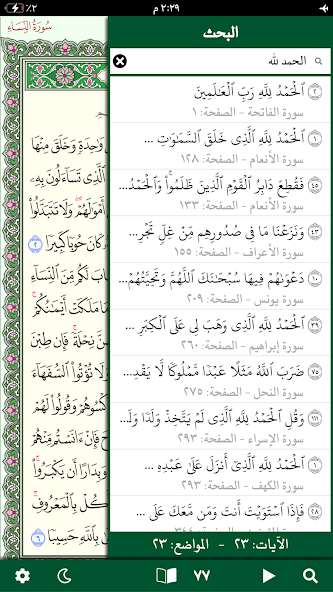 ٪٢
٢:٢٩ م
سُورَةُ النِّسَاءِ
البحث
الحمد لله
٢ ٱلْحَمْدُ لِلَّهِ رَبِّ ٱلْعَـٰلَمِينَ
سورة الفاتحة - الصفحة: ١
١ ٱلْحَمْدُ لِلَّهِ ٱلَّذِى خَلَقَ ٱلسَّمَـٰوَٰتِ ...
سورة الأنعام - الصفحة: ١٢٨
٤٥ فَقُطِعَ دَابِرُ ٱلْقَوْمِ ٱلَّذِينَ ظَلَمُوا۟ ۚ وَٱلْحَمْدُ...
سورة الأنعام - الصفحة: ١٣٣
٤٣ وَنَزَعْنَا مَا فِى صُدُورِهِم مِّنْ غِلٍّ تَجْرِ...
سورة الأعراف - الصفحة: ١٥٥
١٠ دَعْوَىٰهُمْ فِيهَا سُبْحَـٰنَكَ ٱللَّهُمَّ وَتَحِيَّتُهُمْ...
سورة يونس - الصفحة: ٢٠٩
٣٩ ٱلْحَمْدُ لِلَّهِ ٱلَّذِى وَهَبَ لِى عَلَى ٱلْكِبَرِ ...
سورة إبراهيم - الصفحة: ٢٦٠
٧٥ ضَرَبَ ٱللَّهُ مَثَلًا عَبْدًا مَّمْلُوكًا لَّا يَقْدِ...
سورة النحل - الصفحة: ٢٧٥
١١١ وَقُلِ ٱلْحَمْدُ لِلَّهِ ٱلَّذِى لَمْ يَتَّخِذْ وَلَدًا وَلَ...
سورة الإسراء - الصفحة: ٢٩٣
١ ٱلْحَمْدُ لِلَّهِ ٱلَّذِىٓ أَنزَلَ عَلَىٰ عَبْدِهِ ...
سورة الكهف - الصفحة: ٢٩٣
٢٨ فَإِذَا ٱسْتَوَيْتَ أَنتَ وَمَن مَّعَكَ عَلَ...
الآيات: ٢٣ - المواضع: ٢٣
وَٰحِدَةٍ وَخَلَقَ مِنْهَا
ٱلَّذِى تَسَآءَلُونَ بِهِۦ
أَمْوَٰلَهُمْ ۖ وَلَا تَتَبَدَّلُوا۟
كَانَ حُوبًا كَبِيرًا ٢
طَابَ لَكُم مِّنَ ٱلنِّسَآءِ
مَا مَلَكَتْ أَيْمَـٰنُكُمْ
نِحْلَةً ۚ فَإِن طِبْنَ
وَلَا تُؤْتُوا۟ ٱلسُّفَهَآءَ
وَٱكْسُوهُمْ وَقُولُوا۟ لَهُمْ
ٱلنِّكَاحَ فَإِنْ ءَانَسْتُم مِّنْهُمْ
وَبِدَارًا أَن يَكْبَرُوا۟
فَلْيَأْكُلْ بِٱلْمَعْرُوفِ
وَكَفَىٰ بِٱللَّهِ حَسِيبًا ٦
٧٧